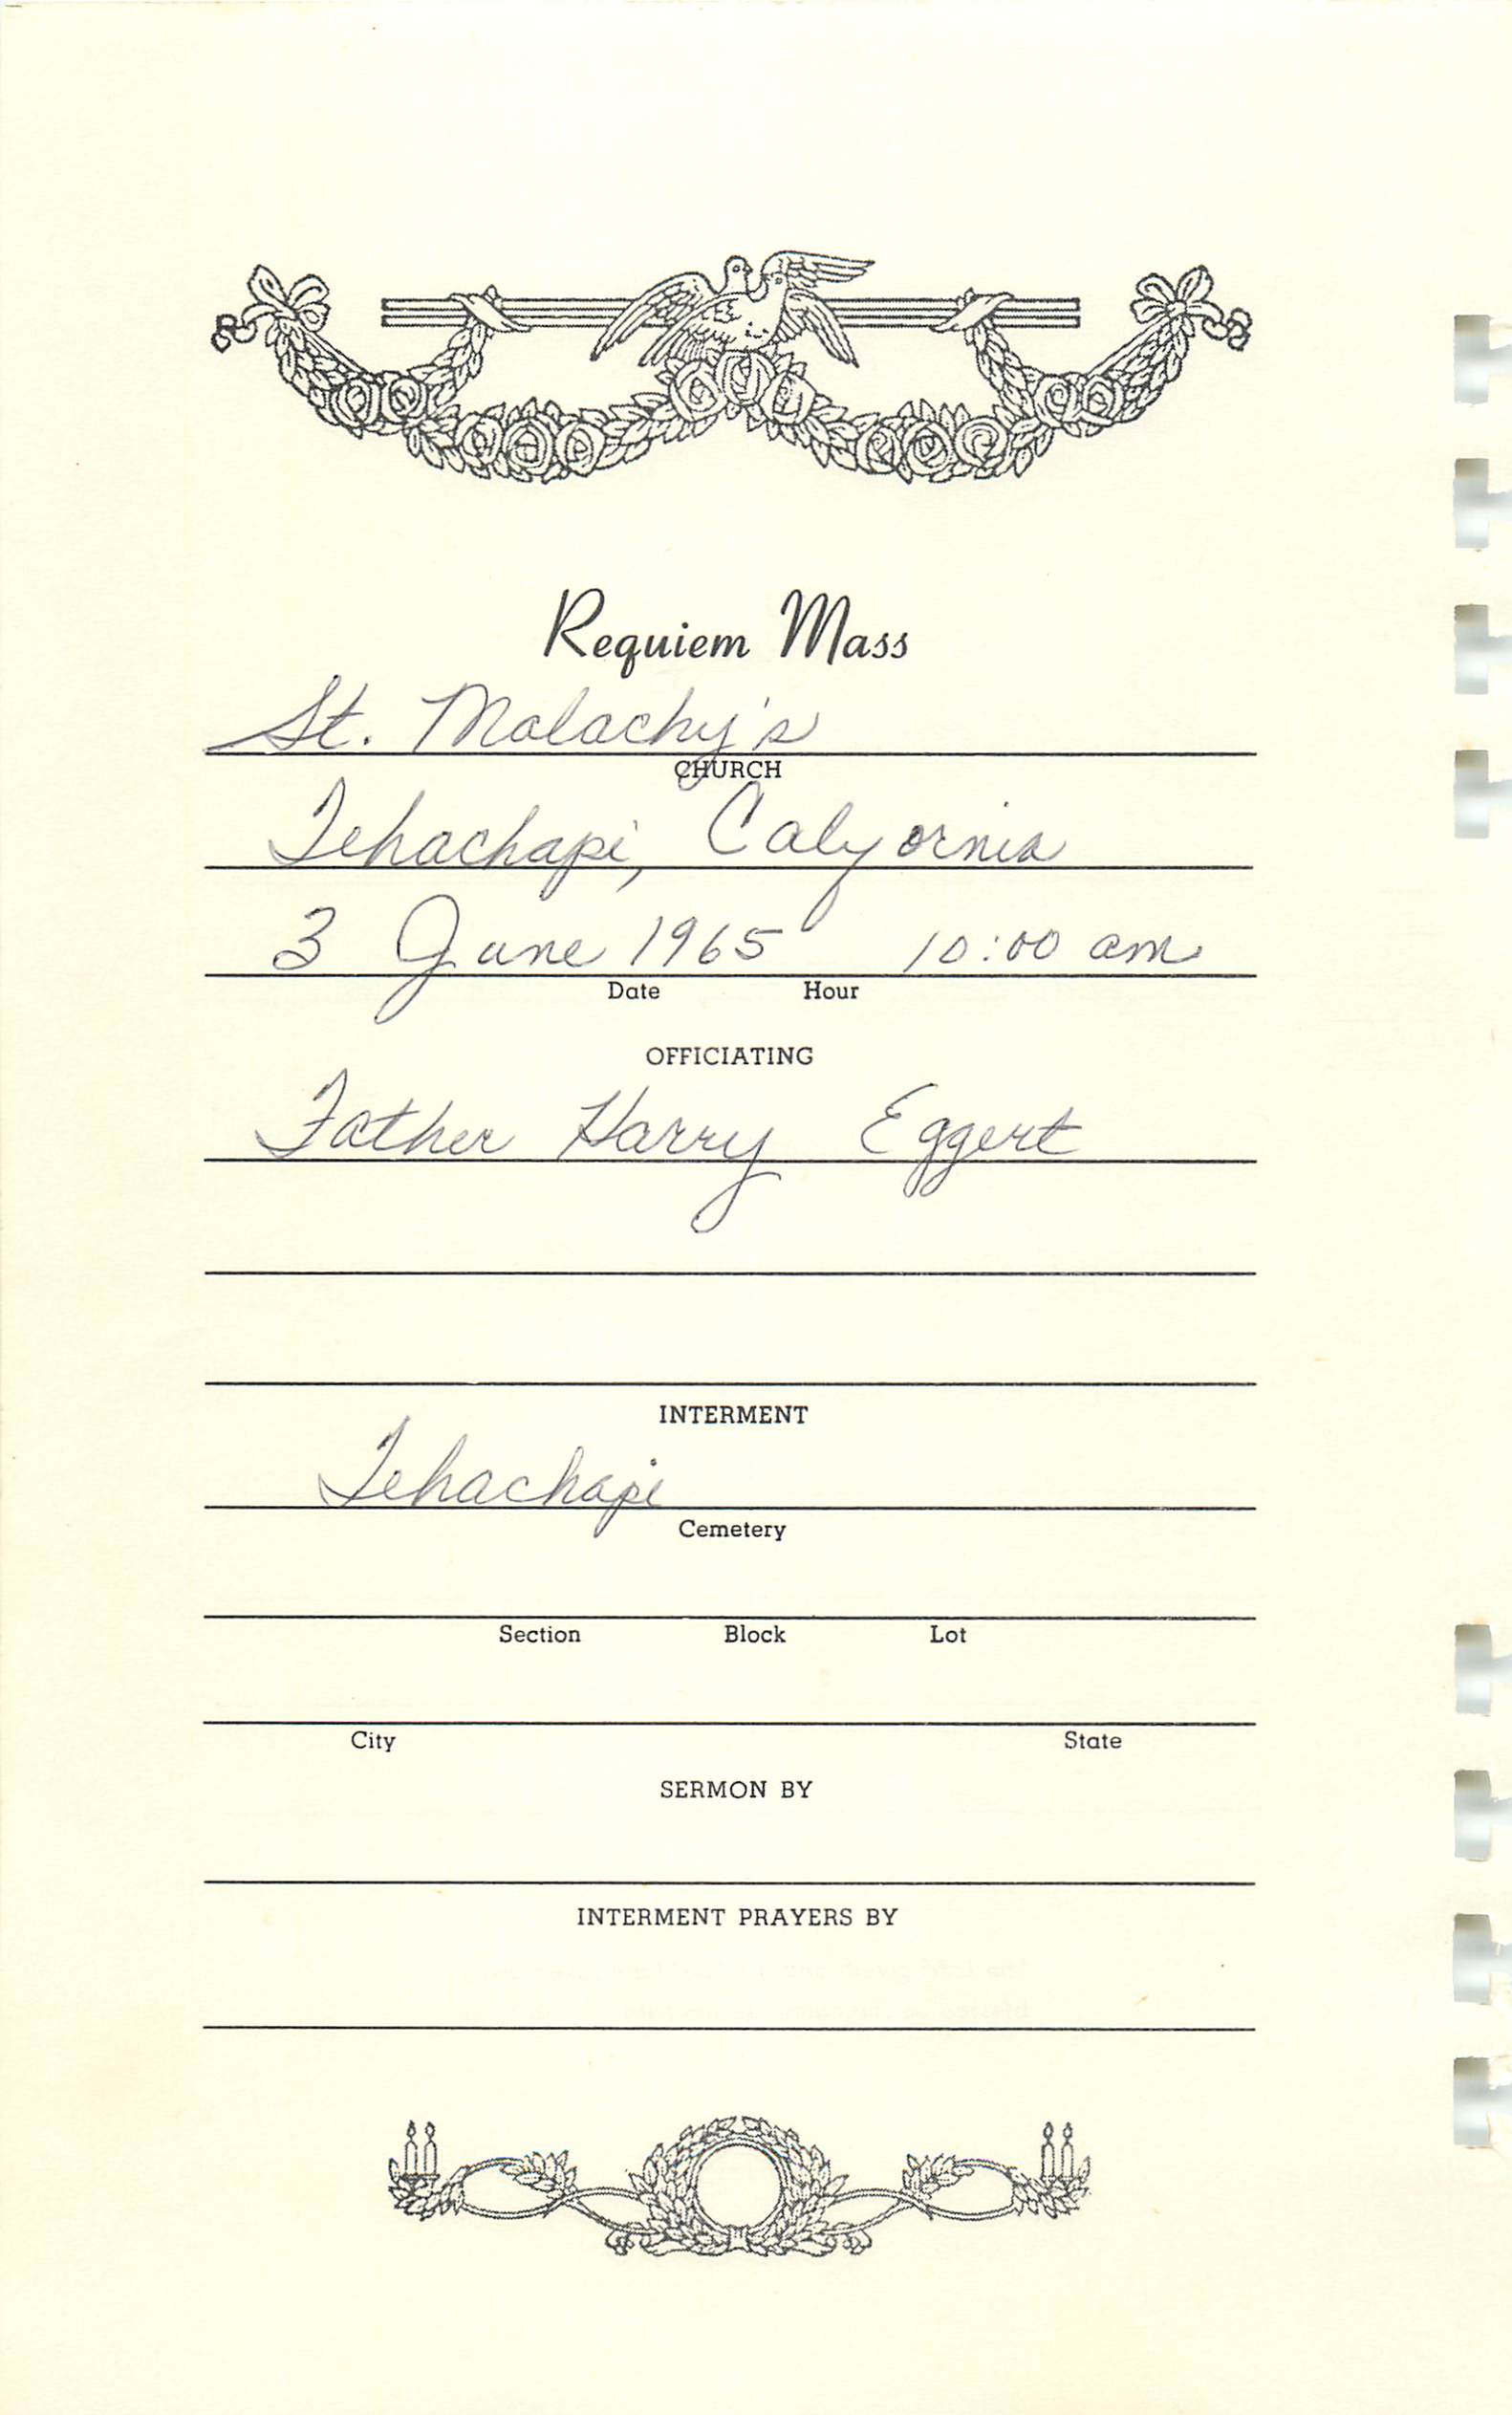 Requiem Mass
St. Malachy's
CHURCH
Tehachapi, California
3 June 1965 10:00 am
Date Hour
OFFICIATING
Father Harry Eggert
INTERMENT
Tehachapi
Cemetery
Section Block Lot
City State
SERMON BY
INTERMENT PRAYERS BY